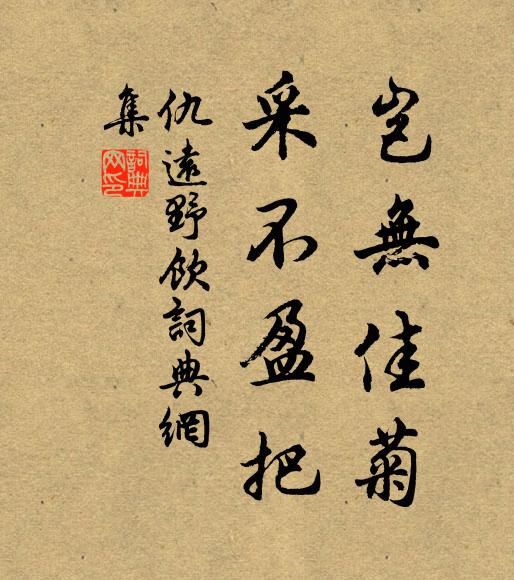 豈無佳菊
采不盈把
仇遠野飲詞典網
集
詞典
网印